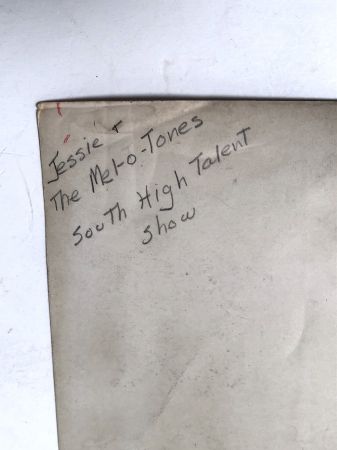 Jessie +
The Mel-o-Tones
South High Talent
Show